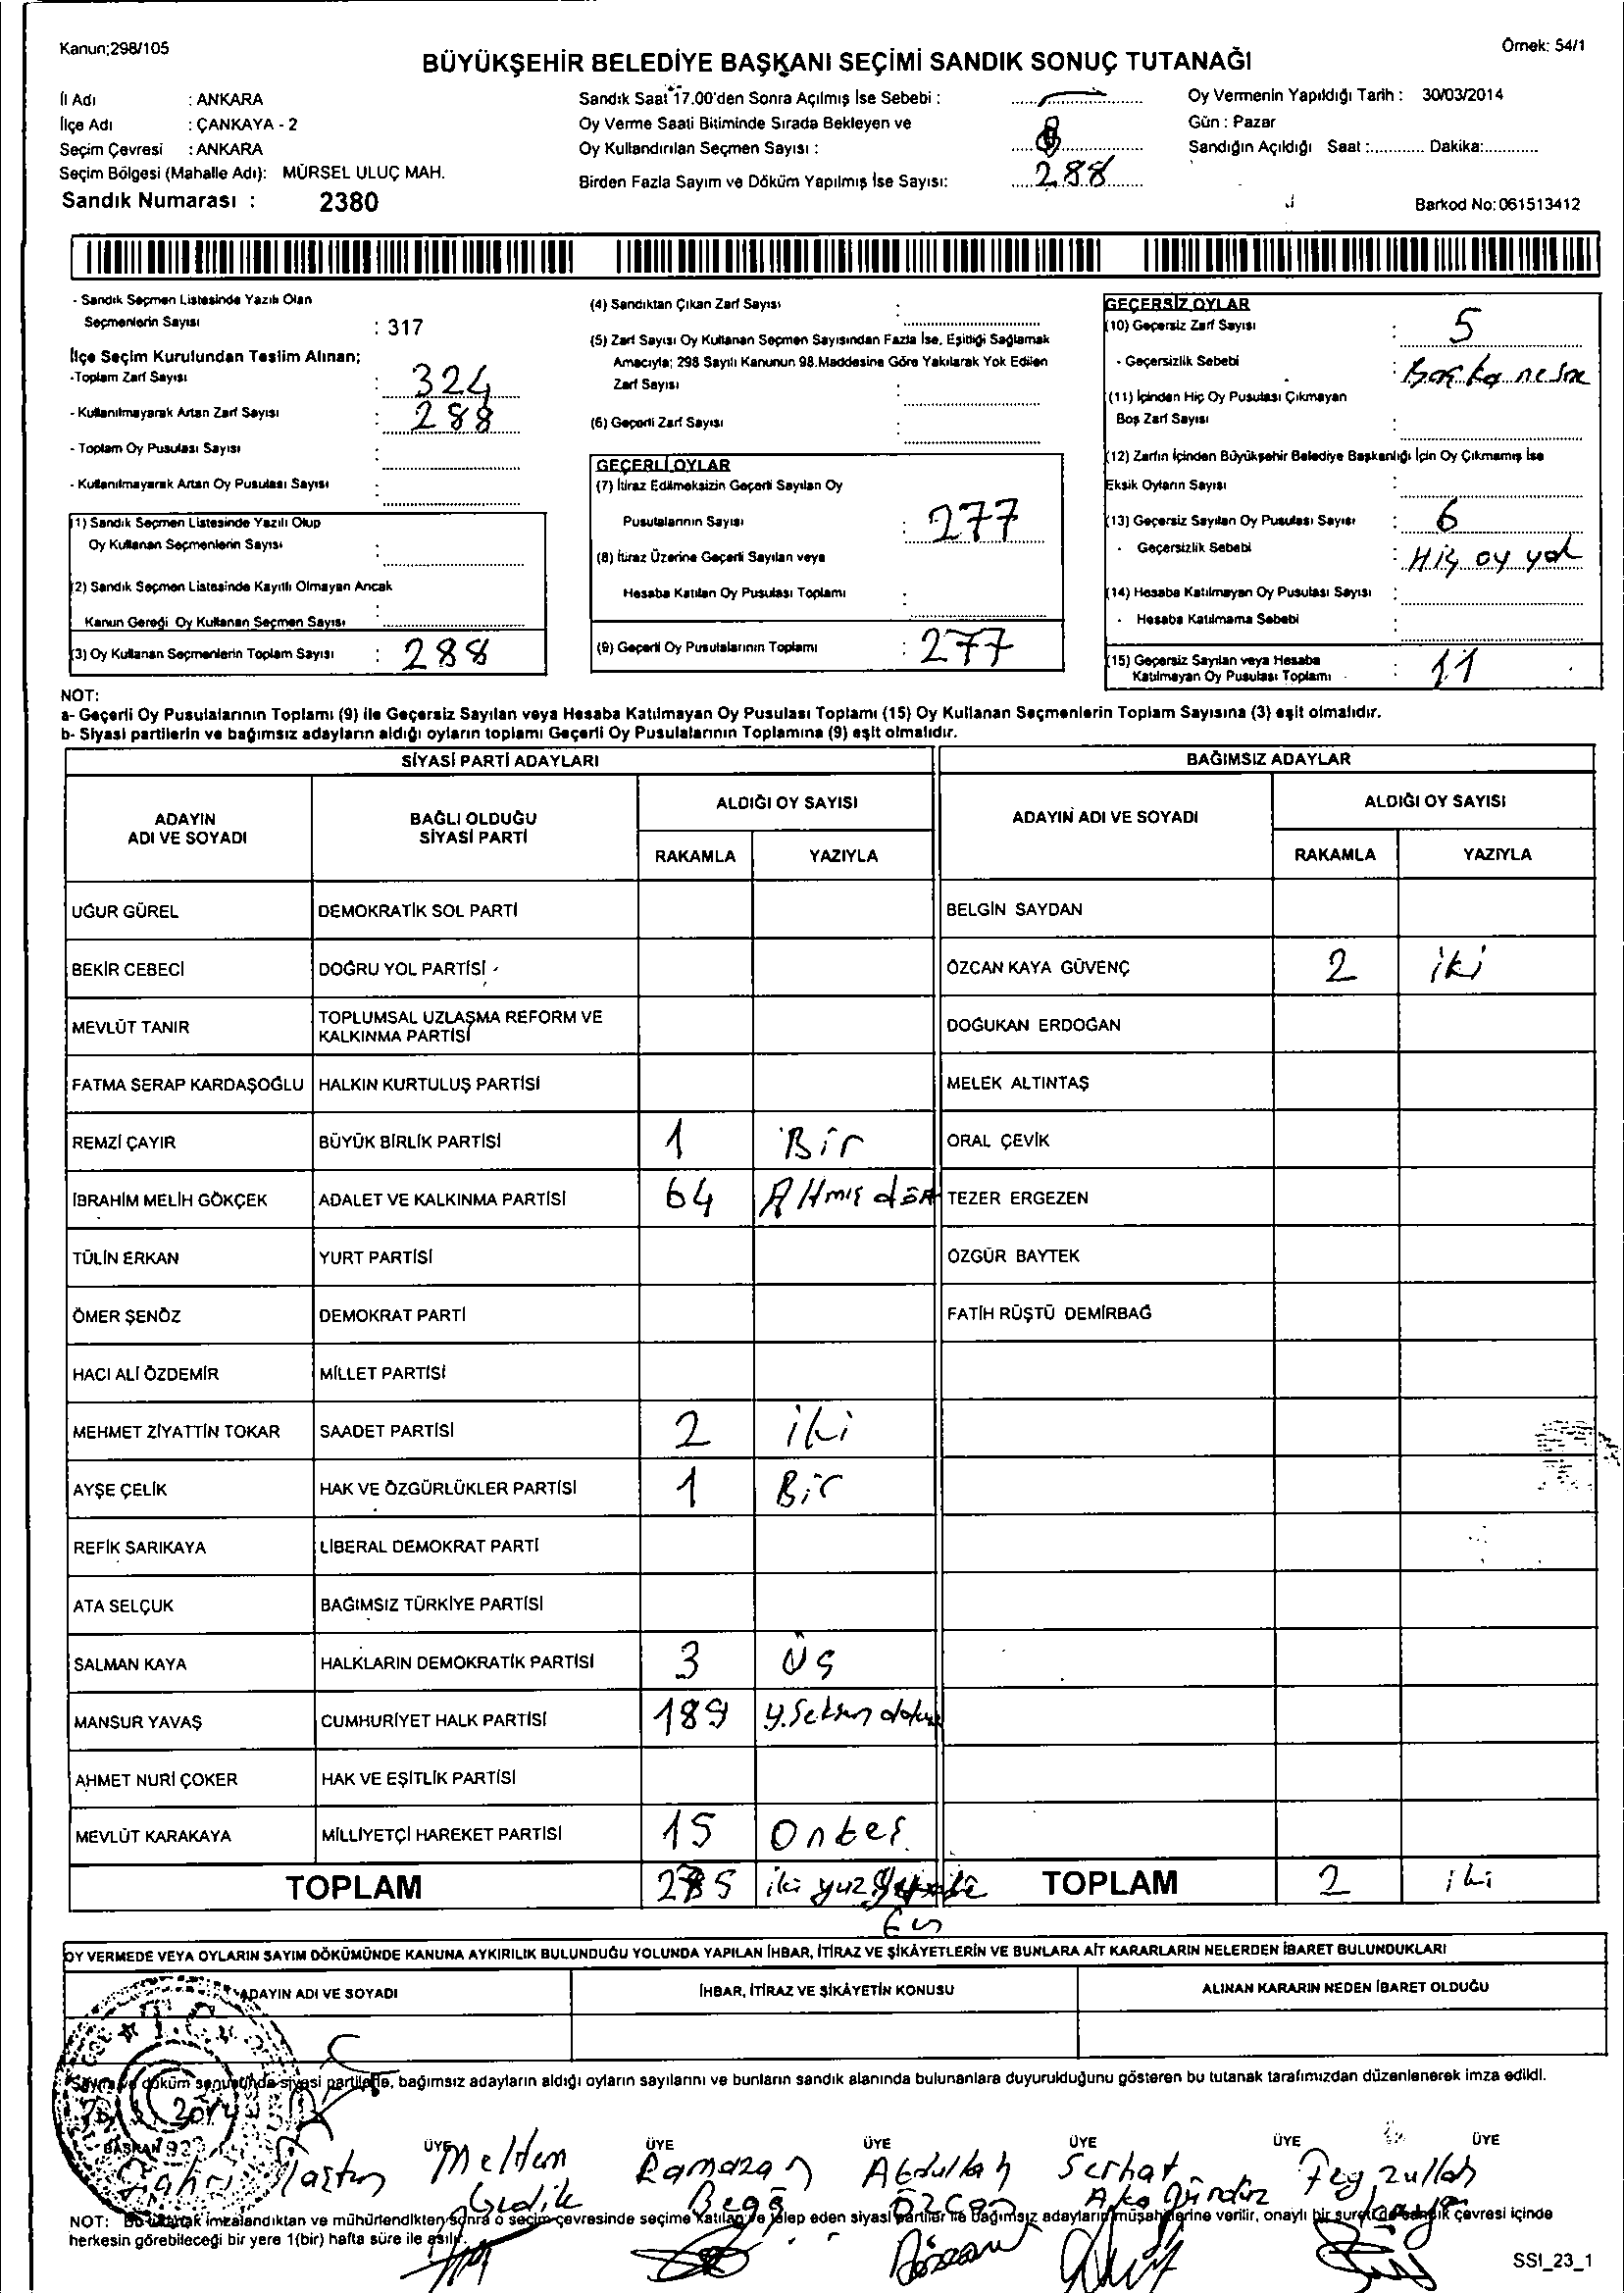 Kanun;298/105
Örnek: 54/1
BÜYÜKŞEHİR BELEDİYE BAŞKANI SEÇİMİ SANDIK SONUÇ TUTANAĞI
İl Adı : ANKARA
İlçe Adı : ÇANKAYA - 2
Seçim Çevresi : ANKARA
Seçim Bölgesi (Mahalle Adı): MÜRSEL ULUÇ MAH.
Sandık Numarası : 2380
Sandık Saat 17.00'den Sonra Açılmış İse Sebebi :
Oy Verme Saati Bitiminde Sırada Bekleyen ve
Oy Kullandırılan Seçmen Sayısı :
Birden Fazla Sayım ve Döküm Yapılmış İse Sayısı: 288
Oy Vermenin Yapıldığı Tarih : 30/03/2014
Gün : Pazar
Sandığın Açıldığı Saat :............ Dakika:............
Barkod No:061513412
- Sandık Seçmen Listesinde Yazılı Olan
Seçmenlerin Sayısı : 317
İlçe Seçim Kurulundan Teslim Alınan;
-Toplam Zarf Sayısı : 324
- Kullanılmayarak Artan Zarf Sayısı : 288
- Toplam Oy Pusulası Sayısı :
- Kullanılmayarak Artan Oy Pusulası Sayısı :
(1) Sandık Seçmen Listesinde Yazılı Olup
Oy Kullanan Seçmenlerin Sayısı :
(2) Sandık Seçmen Listesinde Kayıtlı Olmayan Ancak
Kanun Gereği Oy Kullanan Seçmen Sayısı :
(3) Oy Kullanan Seçmenlerin Toplam Sayısı : 288
(4) Sandıktan Çıkan Zarf Sayısı :
(5) Zarf Sayısı Oy Kullanan Seçmen Sayısından Fazla İse, Eşitliği Sağlamak
Amacıyla; 298 Sayılı Kanunun 98.Maddesine Göre Yakılarak Yok Edilen
Zarf Sayısı :
(6) Geçerli Zarf Sayısı :
GEÇERLİ OYLAR
(7) İtiraz Edilmeksizin Geçerli Sayılan Oy
Pusulalarının Sayısı : 277
(8) İtiraz Üzerine Geçerli Sayılan veya
Hesaba Katılan Oy Pusulası Toplamı :
(9) Geçerli Oy Pusulalarının Toplamı : 277
GEÇERSİZ OYLAR
(10) Geçersiz Zarf Sayısı : 5
- Geçersizlik Sebebi : Başka nesne
(11) İçinden Hiç Oy Pusulası Çıkmayan
Boş Zarf Sayısı :
(12) Zarfın İçinden Büyükşehir Belediye Başkanlığı İçin Oy Çıkmamış İse
Eksik Oyların Sayısı :
(13) Geçersiz Sayılan Oy Pusulası Sayısı : 6
- Geçersizlik Sebebi : Hiç oy yok
(14) Hesaba Katılmayan Oy Pusulası Sayısı :
- Hesaba Katılmama Sebebi :
(15) Geçersiz Sayılan veya Hesaba
Katılmayan Oy Pusulası Toplamı : 11
NOT:
a- Geçerli Oy Pusulalarının Toplamı (9) ile Geçersiz Sayılan veya Hesaba Katılmayan Oy Pusulası Toplamı (15) Oy Kullanan Seçmenlerin Toplam Sayısına (3) eşit olmalıdır.
b- Siyasi partilerin ve bağımsız adayların aldığı oyların toplamı Geçerli Oy Pusulalarının Toplamına (9) eşit olmalıdır.
SİYASİ PARTİ ADAYLARI BAĞIMSIZ ADAYLAR
ADAYIN ADI VE SOYADI BAĞLI OLDUĞU SİYASİ PARTİ ALDIĞI OY SAYISI ADAYIN ADI VE SOYADI ALDIĞI OY SAYISI
RAKAMLA YAZIYLA RAKAMLA YAZIYLA
UĞUR GÜREL DEMOKRATİK SOL PARTİ BELGİN SAYDAN
BEKİR CEBECİ DOĞRU YOL PARTİSİ ÖZCAN KAYA GÜVENÇ 2 iki
MEVLÜT TANIR TOPLUMSAL UZLAŞMA REFORM VE KALKINMA PARTİSİ DOĞUKAN ERDOĞAN
FATMA SERAP KARDAŞOĞLU HALKIN KURTULUŞ PARTİSİ MELEK ALTINTAŞ
REMZİ ÇAYIR BÜYÜK BİRLİK PARTİSİ 1 Bir ORAL ÇEVİK
İBRAHİM MELİH GÖKÇEK ADALET VE KALKINMA PARTİSİ 64 Altmış dört TEZER ERGEZEN
TÜLİN ERKAN YURT PARTİSİ ÖZGÜR BAYTEK
ÖMER ŞENÖZ DEMOKRAT PARTİ FATİH RÜŞTÜ DEMİRBAĞ
HACI ALİ ÖZDEMİR MİLLET PARTİSİ
MEHMET ZİYATTİN TOKAR SAADET PARTİSİ 2 iki
AYŞE ÇELİK HAK VE ÖZGÜRLÜKLER PARTİSİ 1 Bir
REFİK SARIKAYA LİBERAL DEMOKRAT PARTİ
ATA SELÇUK BAĞIMSIZ TÜRKİYE PARTİSİ
SALMAN KAYA HALKLARIN DEMOKRATİK PARTİSİ 3 Üç
MANSUR YAVAŞ CUMHURİYET HALK PARTİSİ 189 y.Seksen dokuz
AHMET NURİ ÇOKER HAK VE EŞİTLİK PARTİSİ
MEVLÜT KARAKAYA MİLLİYETÇİ HAREKET PARTİSİ 15 Onbeş
TOPLAM 275 iki yuz TOPLAM 2 iki
OY VERMEDE VEYA OYLARIN SAYIM DÖKÜMÜNDE KANUNA AYKIRILIK BULUNDUĞU YOLUNDA YAPILAN İHBAR, İTİRAZ VE ŞİKÂYETLERİN VE BUNLARA AİT KARARLARIN NELERDEN İBARET BULUNDUKLARI
ADAYIN ADI VE SOYADI İHBAR, İTİRAZ VE ŞİKÂYETİN KONUSU ALINAN KARARIN NEDEN İBARET OLDUĞU
Sayım ve döküm sonunda siyasi partilerle, bağımsız adayların aldığı oyların sayılarını ve bunların sandık alanında bulunanlara duyurulduğunu gösteren bu tutanak tarafımızdan düzenlenerek imza edildi.
BAŞKAN ÜYE ÜYE ÜYE ÜYE ÜYE ÜYE
Taştan Meltem Ramazan Abdullah Serhat Feyzullah
Gedik Özcan Akgündüz
NOT: Bu tutanak imzalandıktan ve mühürlendikten sonra o seçim çevresinde seçime katılan ve talep eden siyasi partiler ile bağımsız adayların müşahitlerine verilir, onaylı bir sureti de sandık çevresi içinde
herkesin görebileceği bir yere 1(bir) hafta süre ile asılır.
SSI_23_1